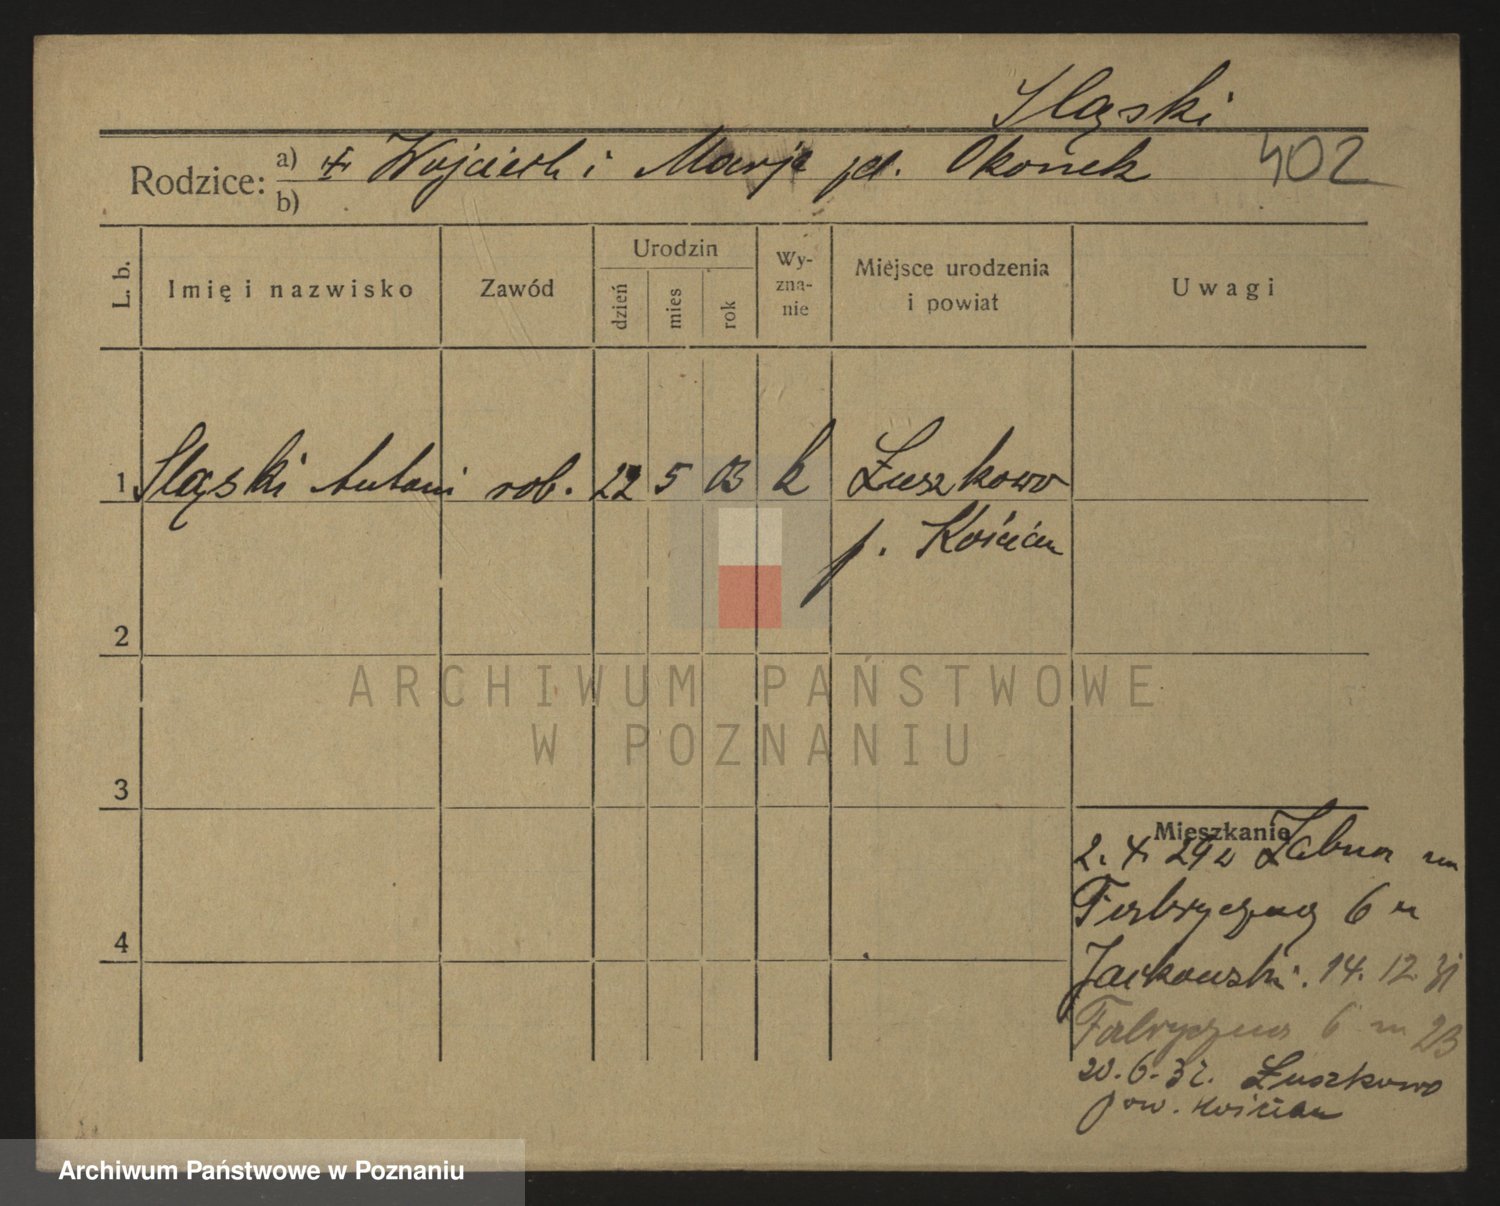 Śląski
Rodzice: a) Wojciech i Marja Okonek 402
b)
L. b. Imię i nazwisko Zawód Urodzin dzień mies rok Wyznanie Miejsce urodzenia i powiat Uwagi
1 Śląski Antoni rob. 22 5 03 k Łuszkowo
p. Kościan
2
ARCHIWUM PAŃSTWOWE
W POZNANIU
3
Mieszkanie
2. 4. 29 Żabna
Fabryczna 6 u
Jackowski. 14. 12 31
Fabryczna 6 m 23
20.6.32. Łuszkowo
pow. Kościan
4
Archiwum Państwowe w Poznaniu